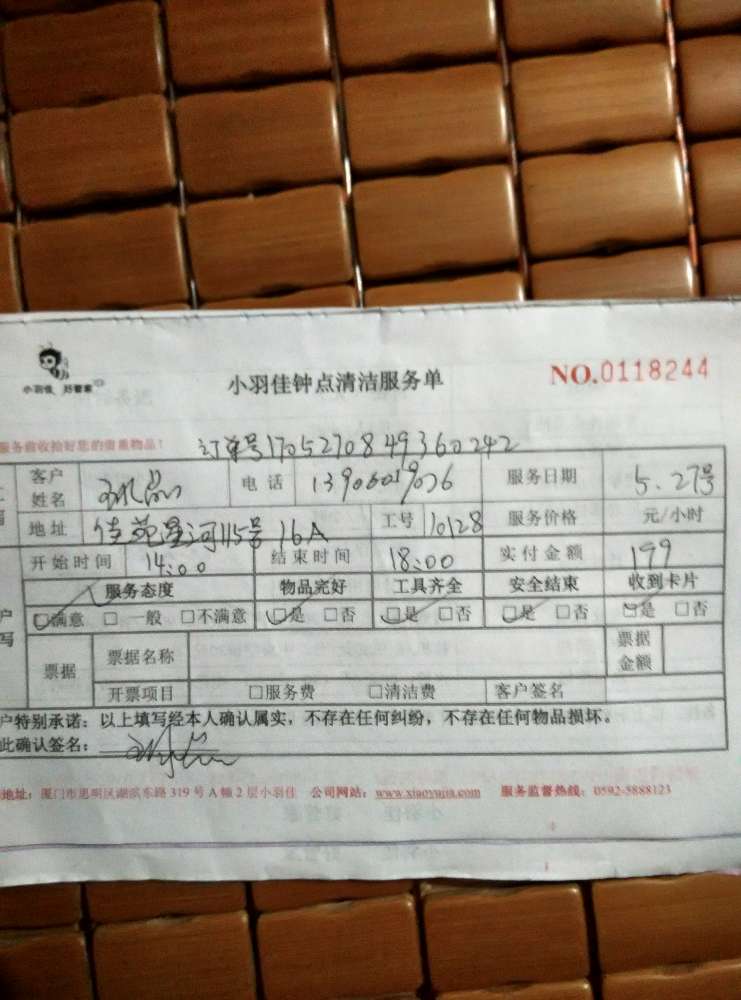 小羽佳 好管家
小羽佳钟点清洁服务单
NO.0118244
服务前收拾好您的贵重物品!
订单号1705270849360242
客户姓名 电话 13906019076 服务日期 5.27号
地址 佳苑星河115号16A 工号 10128 服务价格 元/小时
开始时间 14:00 结束时间 18:00 实付金额 199
服务态度 物品完好 工具齐全 安全结束 收到卡片
☑满意 □一般 □不满意 ☑是 □否 ☑是 □否 ☑是 □否 ☑是 □否
票据 票据名称 票据金额
开票项目 □服务费 □清洁费 客户签名
户特别承诺:以上填写经本人确认属实,不存在任何纠纷,不存在任何物品损坏。
此确认签名:
地址:厦门市思明区湖滨东路 319 号 A 幢 2 层小羽佳 公司网站:www.xiaoyujia.com 服务监督热线:0592-5888123